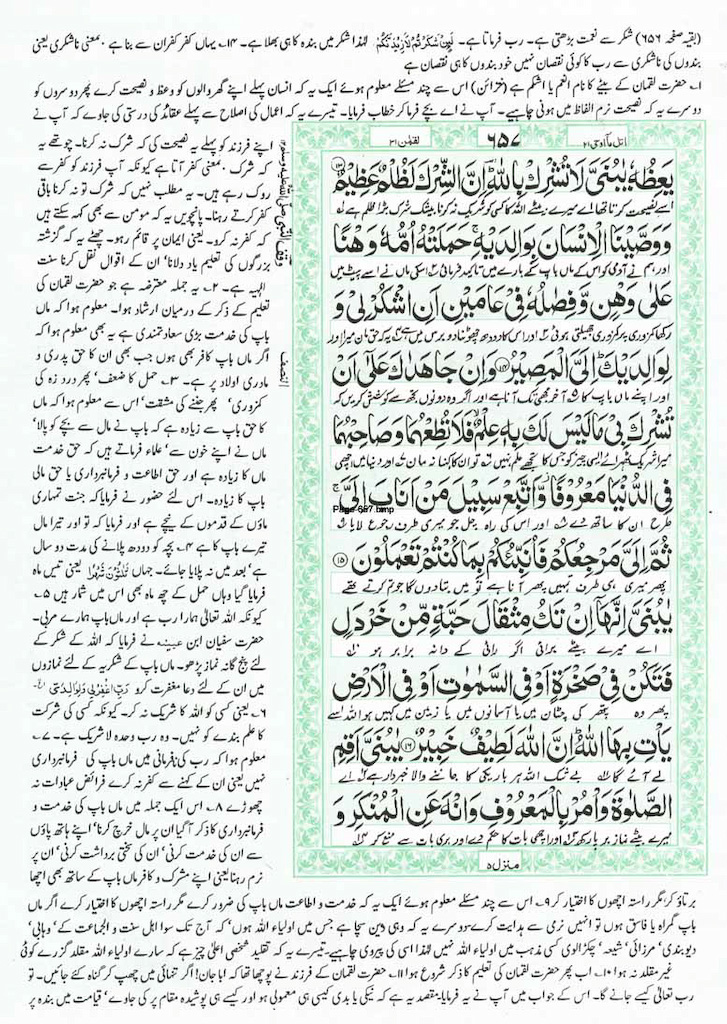 (بقیہ صفحہ ۶۵۶) شکر سے نعمت بڑھتی ہے۔ رب فرماتا ہے۔ لَئِنْ شَكَرْتُمْ لَأَزِيدَنَّكُمْ لہٰذا شکر میں بندہ کا ہی بھلا ہے۔ ۱۴۔ یہاں کفر کفران سے بنا ہے۔ بمعنی ناشکری یعنی
بندوں کی ناشکری سے رب کا کوئی نقصان نہیں خود بندوں کا ہی نقصان ہے
۱۔ حضرت لقمان کے بیٹے کا نام انعم یا اشکم ہے (خزائن) اس سے چند مسئلے معلوم ہوئے ایک یہ کہ انسان پہلے اپنے گھر والوں کو وعظ و نصیحت کرے پھر دوسروں کو
دوسرے یہ کہ نصیحت نرم الفاظ میں ہونی چاہیے۔ آپ نے اے بچے فرما کر خطاب فرمایا۔ تیسرے یہ کہ اعمال کی اصلاح سے پہلے عقائد کی درستی کی جاوے کہ آپ نے
اتل ما اوحی ۲۱
۶۵۷
لقمٰن ۳۱
يَعِظُهٗ يٰبُنَىَّ لَا تُشْرِكْ بِاللّٰهِ ۚ اِنَّ الشِّرْكَ لَظُلْمٌ عَظِيْمٌ ۱۳
اسے نصیحت کرتا تھا اے میرے بیٹے اللہ کا کسی کو شریک نہ کرنا بیشک شرک بڑا ظلم ہے
وَوَصَّيْنَا الْاِنْسَانَ بِوَالِدَيْهِ ۚ حَمَلَتْهُ اُمُّهٗ وَهْنًا
اور ہم نے آدمی کو اس کے ماں باپ کے بارے میں تاکید فرمائی اس کی ماں نے اسے پیٹ میں
عَلٰى وَهْنٍ وَّفِصٰلُهٗ فِىْ عَامَيْنِ اَنِ اشْكُرْ لِىْ وَ
رکھا کمزوری پر کمزوری جھیلتی ہوئی اور اس کا دودھ چھوٹنا دو برس میں ہے یہ کہ حق مان میرا اور
لِوَالِدَيْكَ ؕ اِلَىَّ الْمَصِيْرُ ۱۴ وَاِنْ جَاهَدٰكَ عَلٰٓى اَنْ
اور اپنے ماں باپ کا آخر مجھی تک آنا ہے اور اگر وہ دونوں تجھ سے کوشش کریں کہ
تُشْرِكَ بِىْ مَا لَيْسَ لَكَ بِهٖ عِلْمٌ ۙ فَلَا تُطِعْهُمَا وَصَاحِبْهُمَا
میرا شریک ٹھہرائے ایسی چیز کو جس کا تجھے علم نہیں تو ان کا کہنا نہ مان اور دنیا میں اچھی
فِى الدُّنْيَا مَعْرُوْفًا ؗ وَّاتَّبِعْ سَبِيْلَ مَنْ اَنَابَ اِلَىَّ ۚ
Page-657.bmp
طرح ان کا ساتھ دے اور اس کی راہ چل جو میری طرف رجوع لایا
ثُمَّ اِلَىَّ مَرْجِعُكُمْ فَاُنَبِّئُكُمْ بِمَا كُنْتُمْ تَعْمَلُوْنَ ۱۵
پھر میری ہی طرف تمہیں پھر آنا ہے تو میں بتا دوں گا جو تم کرتے تھے
يٰبُنَىَّ اِنَّهَاۤ اِنْ تَكُ مِثْقَالَ حَبَّةٍ مِّنْ خَرْدَلٍ
اے میرے بیٹے برائی اگر رائی کے دانہ برابر ہو
فَتَكُنْ فِىْ صَخْرَةٍ اَوْ فِى السَّمٰوٰتِ اَوْ فِى الْاَرْضِ
پھر وہ پتھر کی چٹان میں یا آسمانوں میں یا زمین میں کہیں ہو اللہ اسے
يَاْتِ بِهَا اللّٰهُ ؕ اِنَّ اللّٰهَ لَطِيْفٌ خَبِيْرٌ ۱۶ يٰبُنَىَّ اَقِمِ
لے آئے گا بے شک اللہ ہر باریکی کا جاننے والا خبردار ہے اے
الصَّلٰوةَ وَاْمُرْ بِالْمَعْرُوْفِ وَانْهَ عَنِ الْمُنْكَرِ وَ
میرے بیٹے نماز برپا رکھ اور اچھی بات کا حکم دے اور بری بات سے منع کر
منزل ۵
وقف النبی صلی اللہ علیہ وسلم
النصف
اپنے فرزند کو پہلے یہ نصیحت کی کہ شرک نہ کرنا۔ چوتھے یہ
کہ شرک بمعنی کفر آتا ہے کیونکہ آپ فرزند کو کفر سے
روک رہے ہیں۔ یہ مطلب نہیں کہ شرک تو نہ کرنا باقی
کفر کرتے رہنا۔ پانچویں یہ کہ مومن سے بھی کہہ سکتے ہیں
کہ کفر نہ کرو۔ یعنی ایمان پر قائم رہو۔ چھٹے یہ کہ گزشتہ
بزرگوں کی تعلیم یاد دلانا' ان کے اقوال نقل کرنا سنت
الٰہیہ ہے۔ ۲۔ یہ جملہ معترضہ ہے جو حضرت لقمان کی
تعلیم کے ذکر کے درمیان ارشاد ہوا۔ معلوم ہوا کہ ماں
باپ کی خدمت بڑی سعادتمندی ہے یہ بھی معلوم ہوا کہ
اگر ماں باپ کافر بھی ہوں جب بھی ان کا حق پدری و
مادری اولاد پر ہے۔ ۳۔ حمل کا ضعف' پھر درد زہ کی
کمزوری' پھر جننے کی مشقت' اس سے معلوم ہوا کہ ماں
کا حق باپ سے زیادہ ہے کہ باپ نے مال سے بچے کو پالا'
ماں نے اپنے خون سے' علماء فرماتے ہیں کہ حق خدمت
ماں کا زیادہ ہے اور حق اطاعت و فرمانبرداری یا حق مالی
باپ کا زیادہ۔ اس لئے حضور نے فرمایا کہ جنت تمہاری
ماؤں کے قدموں کے نیچے ہے اور فرمایا کہ تو اور تیرا مال
تیرے باپ کا ہے ۴۔ بچہ کو دودھ پلانے کی مدت دو سال
ہے' بعد میں نہ پلایا جائے۔ جہاں ثَلٰثُوْنَ شَهْرًا یعنی تیس ماہ
فرمایا گیا وہاں حمل کے چھ ماہ بھی اس میں شمار ہیں ۵۔
کیونکہ اللہ تعالیٰ ہمارا رب ہے اور ماں باپ ہمارے مربی۔
حضرت سفیان ابن عیینہ نے فرمایا کہ اللہ کے شکر کے
لئے پنج گانہ نماز پڑھو۔ ماں باپ کے شکریہ کے لئے نمازوں
میں ان کے لئے دعا مغفرت کرو رَبِّ اغْفِرْلِىْ وَلِوَالِدَىَّ الخ۔
۶۔ یعنی کسی کو اللہ کا شریک نہ کر۔ کیونکہ کسی کی شرکت
کا علم بندہ کو نہیں۔ وہ رب وحدہ لا شریک ہے۔ ۷۔
معلوم ہوا کہ رب کی نافرمانی میں ماں باپ کی فرمانبرداری
نہیں یعنی ان کے کہنے سے کفر نہ کرے فرائض عبادات نہ
چھوڑے ۸۔ اس ایک جملہ میں ماں باپ کی خدمت و
فرمانبرداری کا ذکر آ گیا ان پر مال خرچ کرنا' اپنے ہاتھ پاؤں
سے ان کی خدمت کرنی' ان کی سختی برداشت کرنی' ان پر
نرم رہنا یعنی اپنے مشرک و کافر ماں باپ کے ساتھ بھی اچھا
برتاؤ کر' مگر راستہ اچھوں کا اختیار کر ۹۔ اس سے چند مسئلے معلوم ہوئے ایک یہ کہ خدمت و اطاعت ماں باپ کی ضرور کرے مگر راستہ اچھوں کا اختیار کرے اگر ماں
باپ گمراہ یا فاسق ہوں تو انہیں نرمی سے ہدایت کرے دوسرے یہ کہ وہی دین سچا ہے جس میں اولیاء اللہ ہوں' کہ آج تک سوا اہل سنت و الجماعت کے' وہابی'
دیوبندی' مرزائی' شیعہ' چکڑالوی کسی مذہب میں اولیاء اللہ نہیں لہٰذا اسی کی پیروی چاہیے۔ تیسرے یہ کہ تقلید شخصی اعلیٰ چیز ہے کہ سارے اولیاء اللہ مقلد گزرے کوئی
غیر مقلد نہ ہوا ۱۰۔ اب پھر حضرت لقمان کی تعلیم کا ذکر شروع ہوا ۱۱۔ حضرت لقمان کے فرزند نے پوچھا تھا کہ ابا جان! اگر تنہائی میں چھپ کر گناہ کئے جائیں۔ تو
رب تعالیٰ کیسے جانے گا۔ اس کے جواب میں آپ نے یہ فرمایا۔ مقصد یہ ہے کہ نیکی یا بدی کیسی ہی معمولی ہو اور کیسے ہی پوشیدہ مقام پر کی جاوے' قیامت میں بندہ پر